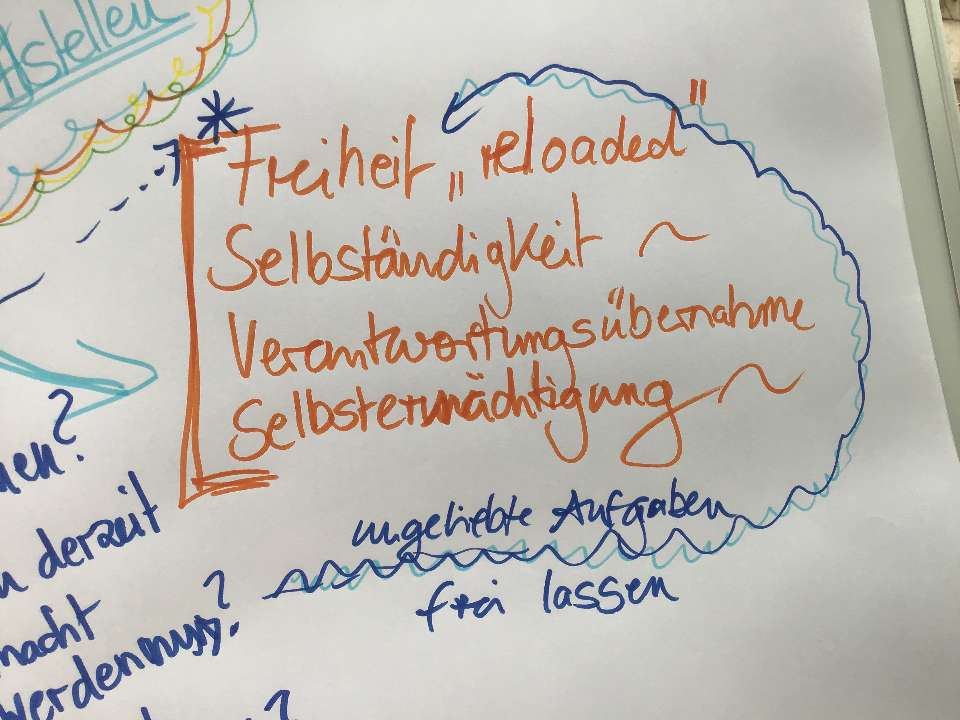 Freiheit „reloaded"
Selbständigkeit ~
Verantwortungsübernahme
Selbstermächtigung ~
ungeliebte Aufgaben
frei lassen
derzeit
?
?